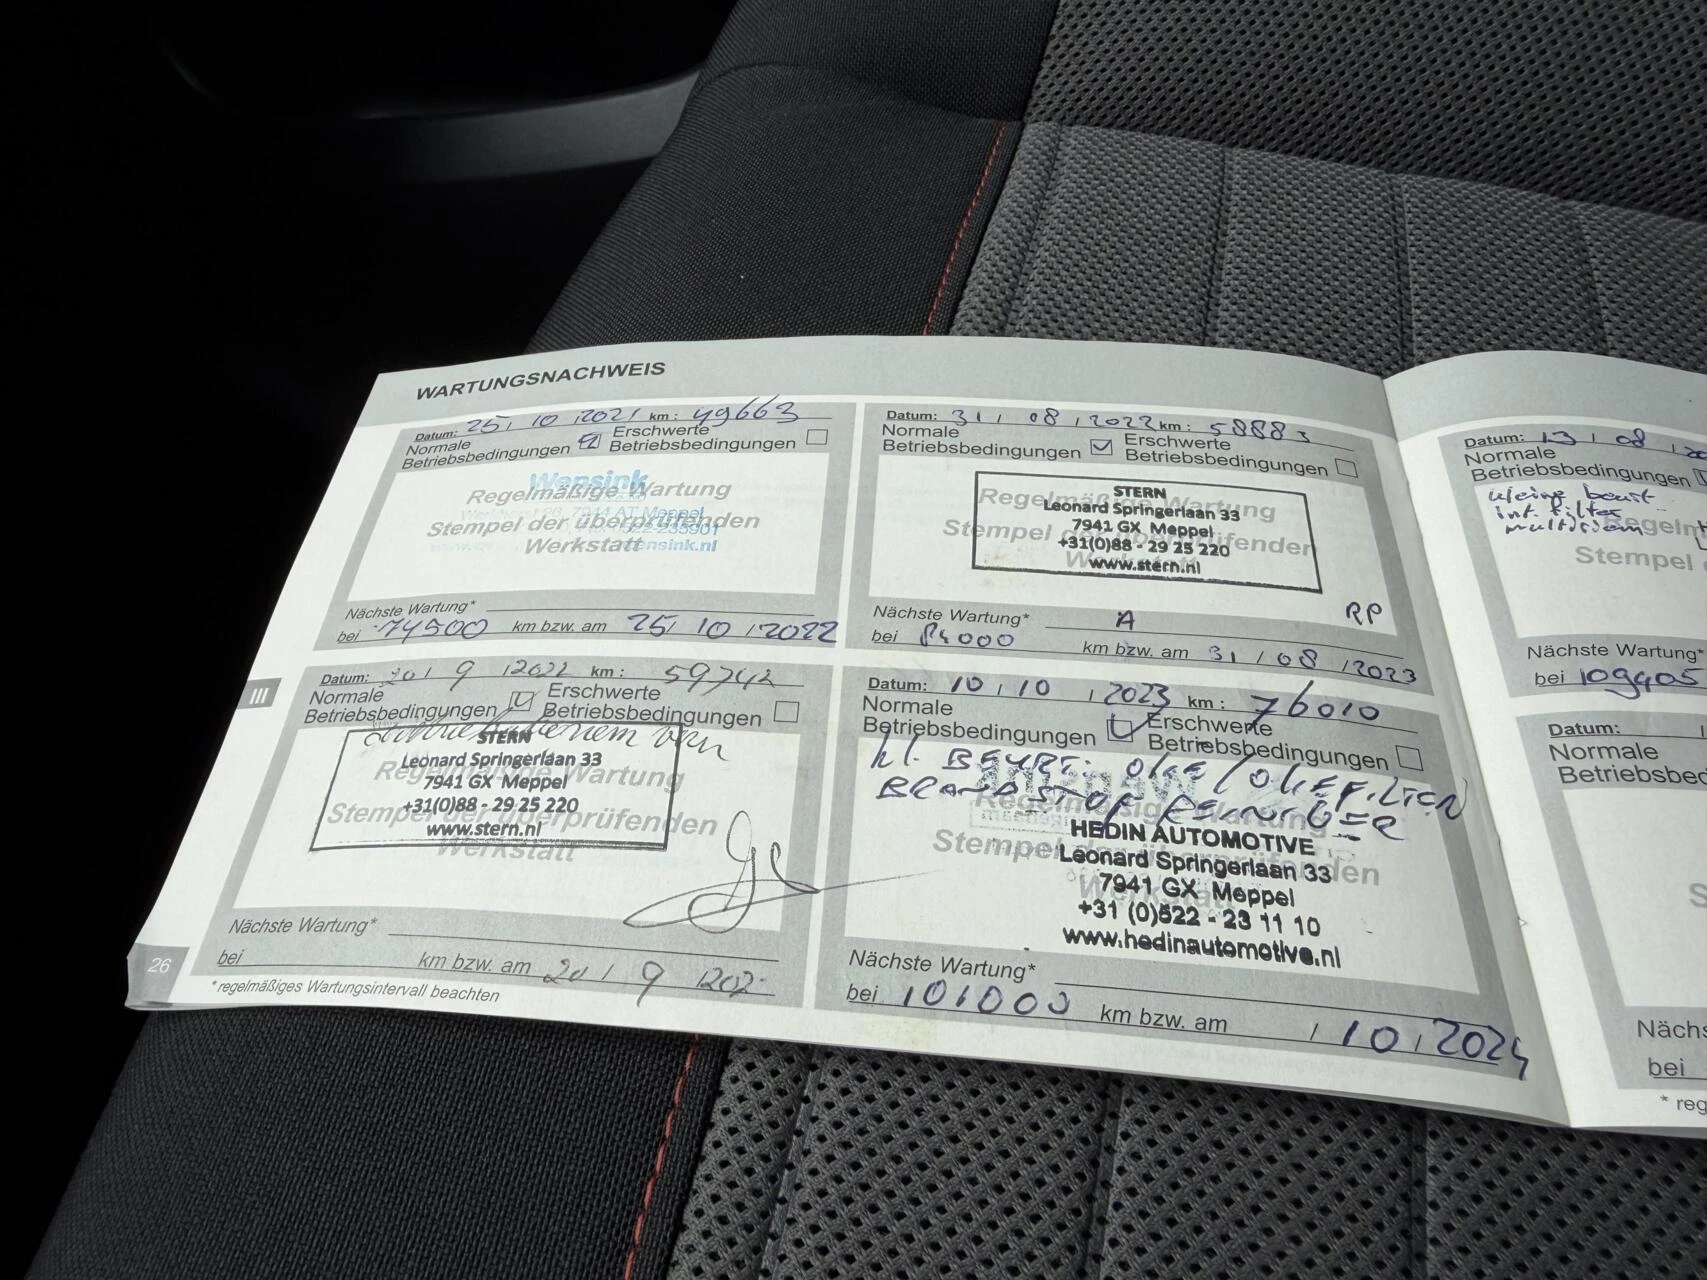 WARTUNGSNACHWEIS
Datum: 25 / 10 / 2021 km: 49663
Normale Betriebsbedingungen Erschwerte Betriebsbedingungen
Wensink
Regelmäßige Wartung
26, 7944 AT Meppel
Stempel der überprüfenden
Werkstatt
Nächste Wartung*
bei 74500 km bzw. am 25 / 10 / 2022
Datum: 31 / 08 / 2022 km: 58883
Normale Betriebsbedingungen Erschwerte Betriebsbedingungen
STERN
Regelmäßige Wartung
Leonard Springerlaan 33
7941 GX Meppel
Stempel der überprüfenden
+31(0)88 - 29 25 220
www.stern.nl
Nächste Wartung* A RP
bei 84000 km bzw. am 31 / 08 / 2023
Datum: 20 / 9 / 2022 km: 59742
Normale Betriebsbedingungen Erschwerte Betriebsbedingungen
STERN
Leonard Springerlaan 33
Regelmäßige Wartung
7941 GX Meppel
+31(0)88 - 29 25 220
Stempel der überprüfenden
www.stern.nl
Werkstatt
Nächste Wartung*
bei km bzw. am 20 / 9 / 202
Datum: 10 / 10 / 2023 km: 76010
Normale Betriebsbedingungen Erschwerte Betriebsbedingungen
kl. BEURT: OLIE / OLIEFILTER
BRANDSTOF
Regelmäßige Wartung
HEDIN AUTOMOTIVE
Stempel der überprüfenden
Leonard Springerlaan 33
7941 GX Meppel
+31 (0)522 - 23 11 10
www.hedinautomotive.nl
Nächste Wartung*
bei 101000 km bzw. am / 10 / 2024
26
* regelmäßiges Wartungsintervall beachten
III
Datum: 13 / 08 / 20
Normale
Betriebsbedingungen
kleine beurt
int. filter
Regelm
Stempel
Nächste Wartung*
bei 109405
Datum:
Normale
Betriebsbed
Nächs
bei
* reg